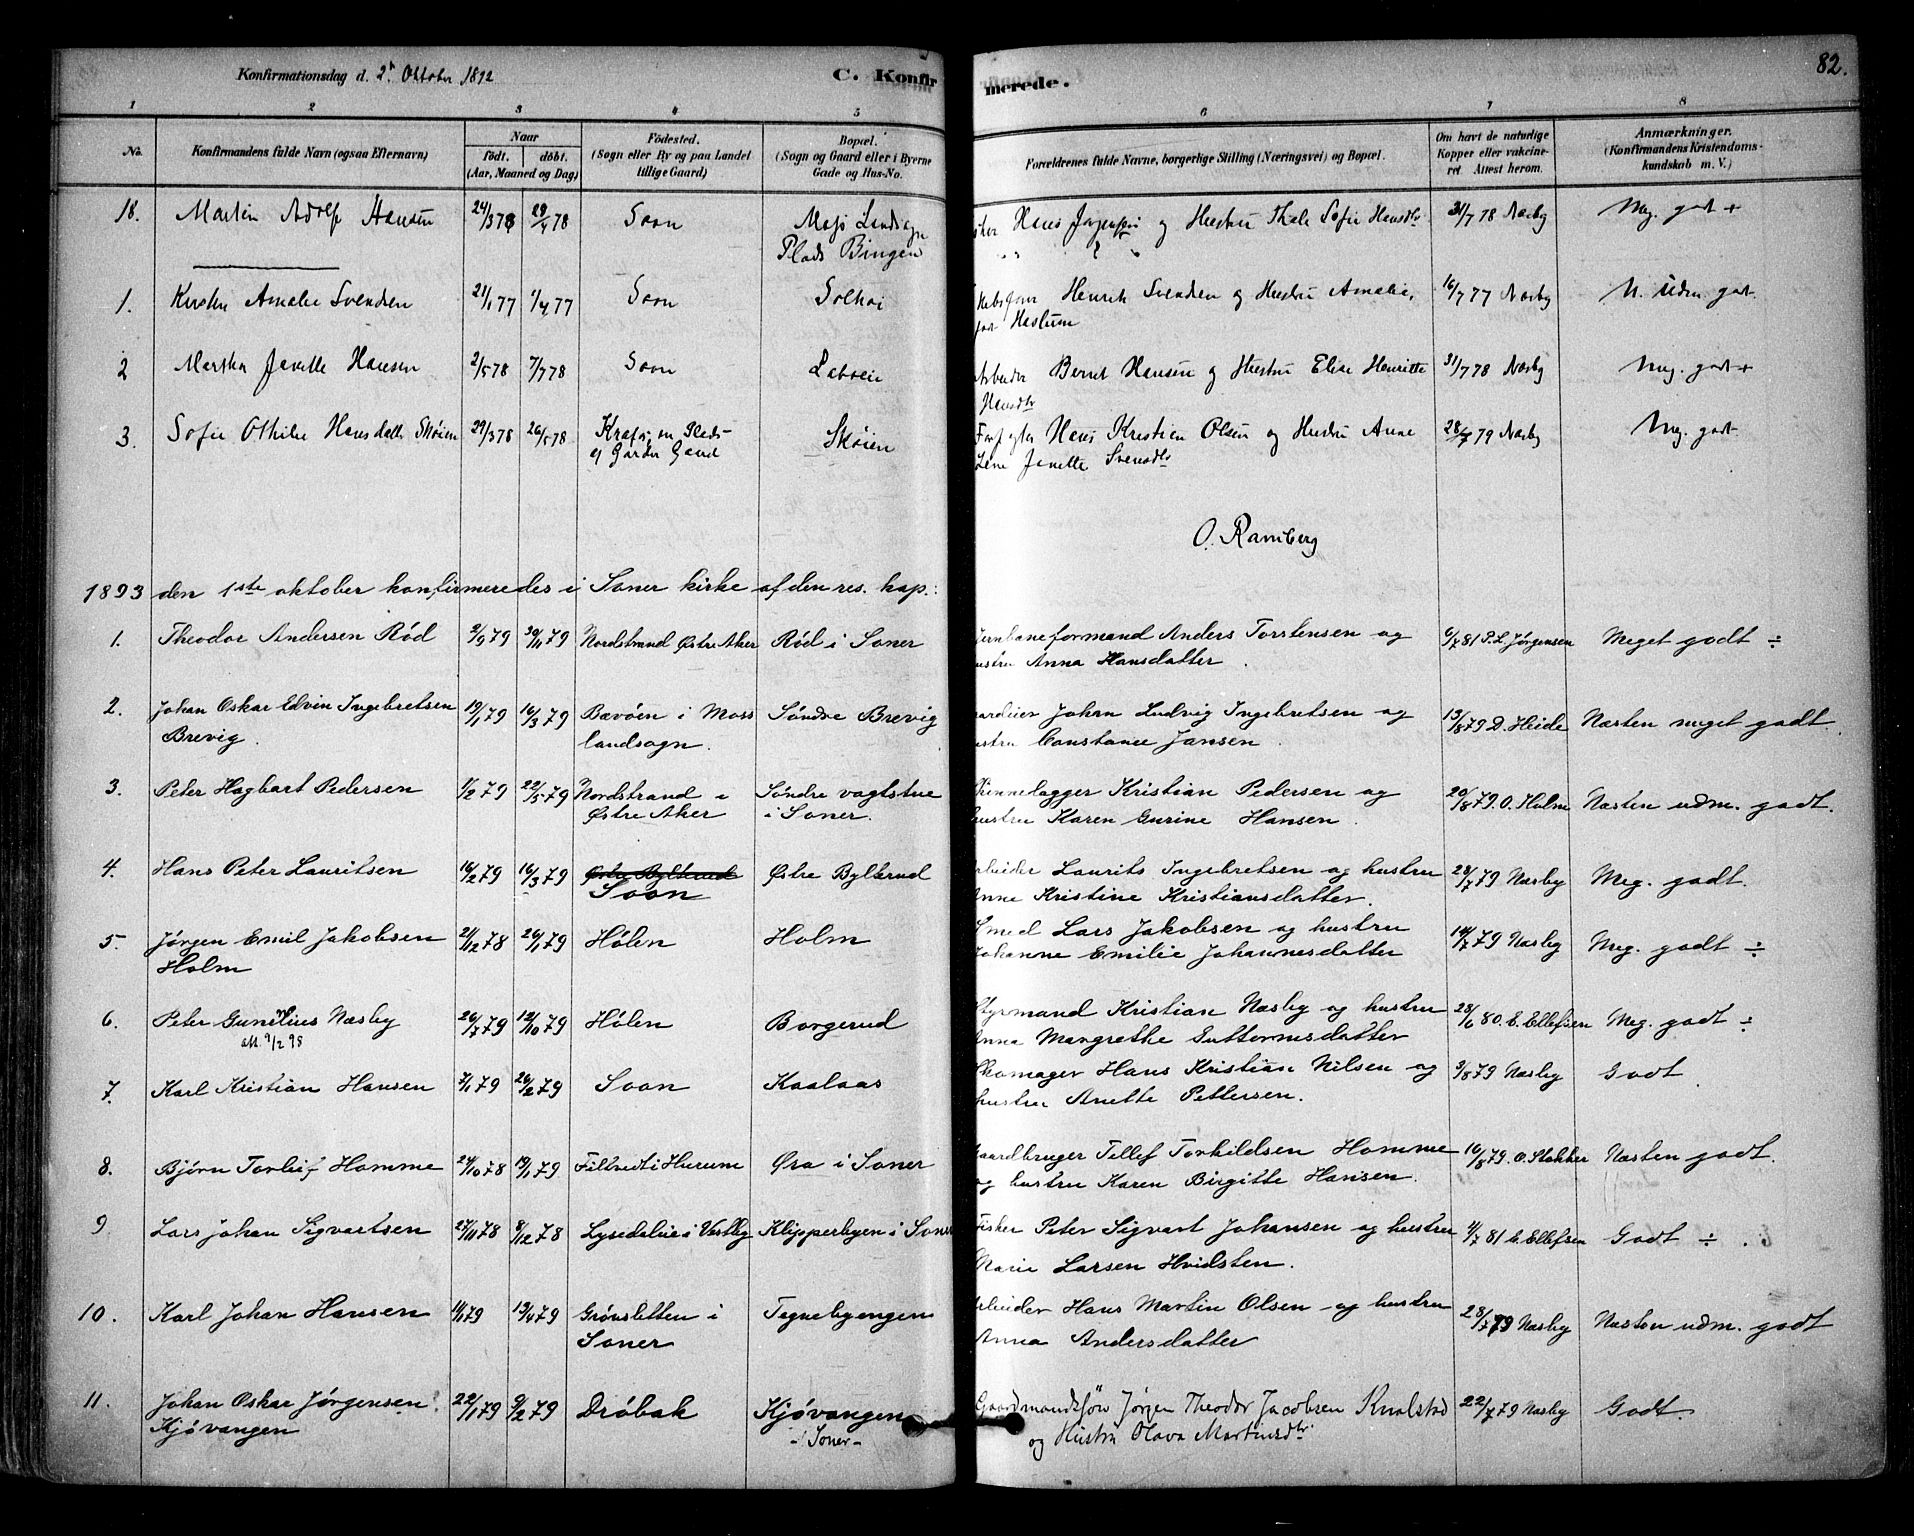 Konfirmationsdag d. 2. Oktober 1892
C. Konfir
merede.
82.
1 2 3 4 5 6 7 8
No.
Konfirmandens fulde Navn (ogsaa Efternavn)
Naar
født. døbt.
(Aar, Maaned og Dag)
Fødested.
(Sogn eller By og paa Landet
tillige Gaard)
Bopæl.
(Sogn og Gaard eller i Byerne
Gade og Hus-No.
Forældrenes fulde Navne, borgerlige Stilling (Næringsvei) og Bopæl.
Om havt de naturlige
Kopper eller vakcine-
ret. Attest herom.
Anmærkninger.
(Konfirmandens Kristendoms-
kundskab m. V.)
18. Martin Adolf Hansen 24/3 78 29/4 78 Soon Moss Landsogn
Plads Bingen
Hans og Hustru Thale Sofie Hansdtr 31/7 78 Næsby Meg. godt +
1. Kirstine Amalie Svendsen 21/1 77 1/4 77 Soon Solhoi
Henrik Svendsen og Hustru Amalie, 16/7 77 Næsby N. Udm. godt
Haslum
2 Martha Janette Hansen 2/5 78 7/7 78 Soon Laboen
Arbeider Bernt Hansen og Hustru Elise Henriette 31/7 78 Næsby Meg. godt +
Hansdtr
3. Sofie Othilie Hansdatter Skøien 29/3 78 26/5 78 Plads-
Gaard
Skøien
Hans Kristian Olsen og Hustru Anne 28/7 79 Næsby Meg. godt
Lene Janette Svensdtr
O. Ramberg
1893 den 1ste oktober konfirmeredes i Soner kirke af den res. kap.:
1. Theodor Andersen Rød 2/9 79 30/11 79 Nordstrand Østre Aker Rød i Soner
Jernbaneformand Anders Torstensen og 6/7 81 P.L. Jørgensen Meget godt ÷
hustru Anna Hansdatter.
2. Johan Oskar Edvin Ingebretsen 19/1 79 16/3 79 Bævøen i Moss Søndre Brevig
Brevig. landsogn.
Johan Ludvig Ingebretsen og 13/8 79 D. Heide Næsten meget godt.
hustru Constance Jansen.
3. Peter Hagbart Pedersen 1/2 79 22/5 79 Nordstrand i Søndre vagtstue
Østre Aker i Soner.
Skinnelægger Kristian Pedersen og 20/8 79. O. Holm Næsten udm. godt.
hustru Karen Gurine Hansen.
4. Hans Peter Lauritsen 16/2 79 16/3 79 Østre Bylterud Østre Bylterud
Soon
Arbeider Laurits Ingebretsen og hustru 28/7 79 Næsby Meg. godt.
Anne Kristine Kristiansdatter.
5. Jørgen Emil Jakobsen 21/12 78 26/1 79 Hølen Holm
Holm
Smed Lars Jakobsen og hustru 14/7 79 Næsby Meg. godt ÷
Johanne Emilie Johannesdatter
6. Peter Gunelius Næsby 26/7 79 12/10 79 Hølen Borgerud
att. 9/2 98
Styrmand Kristian Næsby og hustru 28/6 80. E. Ellefsen Meg. godt ÷
Anna Margrethe Guttormsdatter
7. Karl Kristian Hansen 7/1 79 26/2 79 Soon Kaalaas
Skomager Hans Kristian Nilsen og 3/8 79 Næsby Godt.
hustru Anette Pettersen.
8. Bjørn Torleif Homme 24/10 78 19/1 79 Filtvedt i Hurum Øra i Soner
Gaardbruger Tellef Torkildsen Homme 16/8 79. O. Stokker Næsten godt.
og hustru Karen Birgitte Hansen.
9. Lars Johan Sigvartsen 27/11 78 8/12 78 Lysedalene i Vestby Klipperbyen i Soner
Fisker Peter Sigvart Johansen og hustru 4/7 81 E. Ellefsen Godt ÷
Marie Larsen Hvidsten.
10. Karl Johan Hansen 11/1 79 13/4 79 Grønsletten i Tegnebyengen
Soner
Arbeider Hans Martin Olsen og hustru 28/7 79 Næsby Næsten udm. godt
Anna Andersdatter
11. Johan Oskar Jørgensen 22/1 79 9/2 79 Drøbak Kjøvangen
Kjøvangen - Soner -
Gaardmandssøn Jørgen Theodor Jacobsen Knalstad 22/7 79 Næsby Godt.
og Hustru Olava Martinsdtr